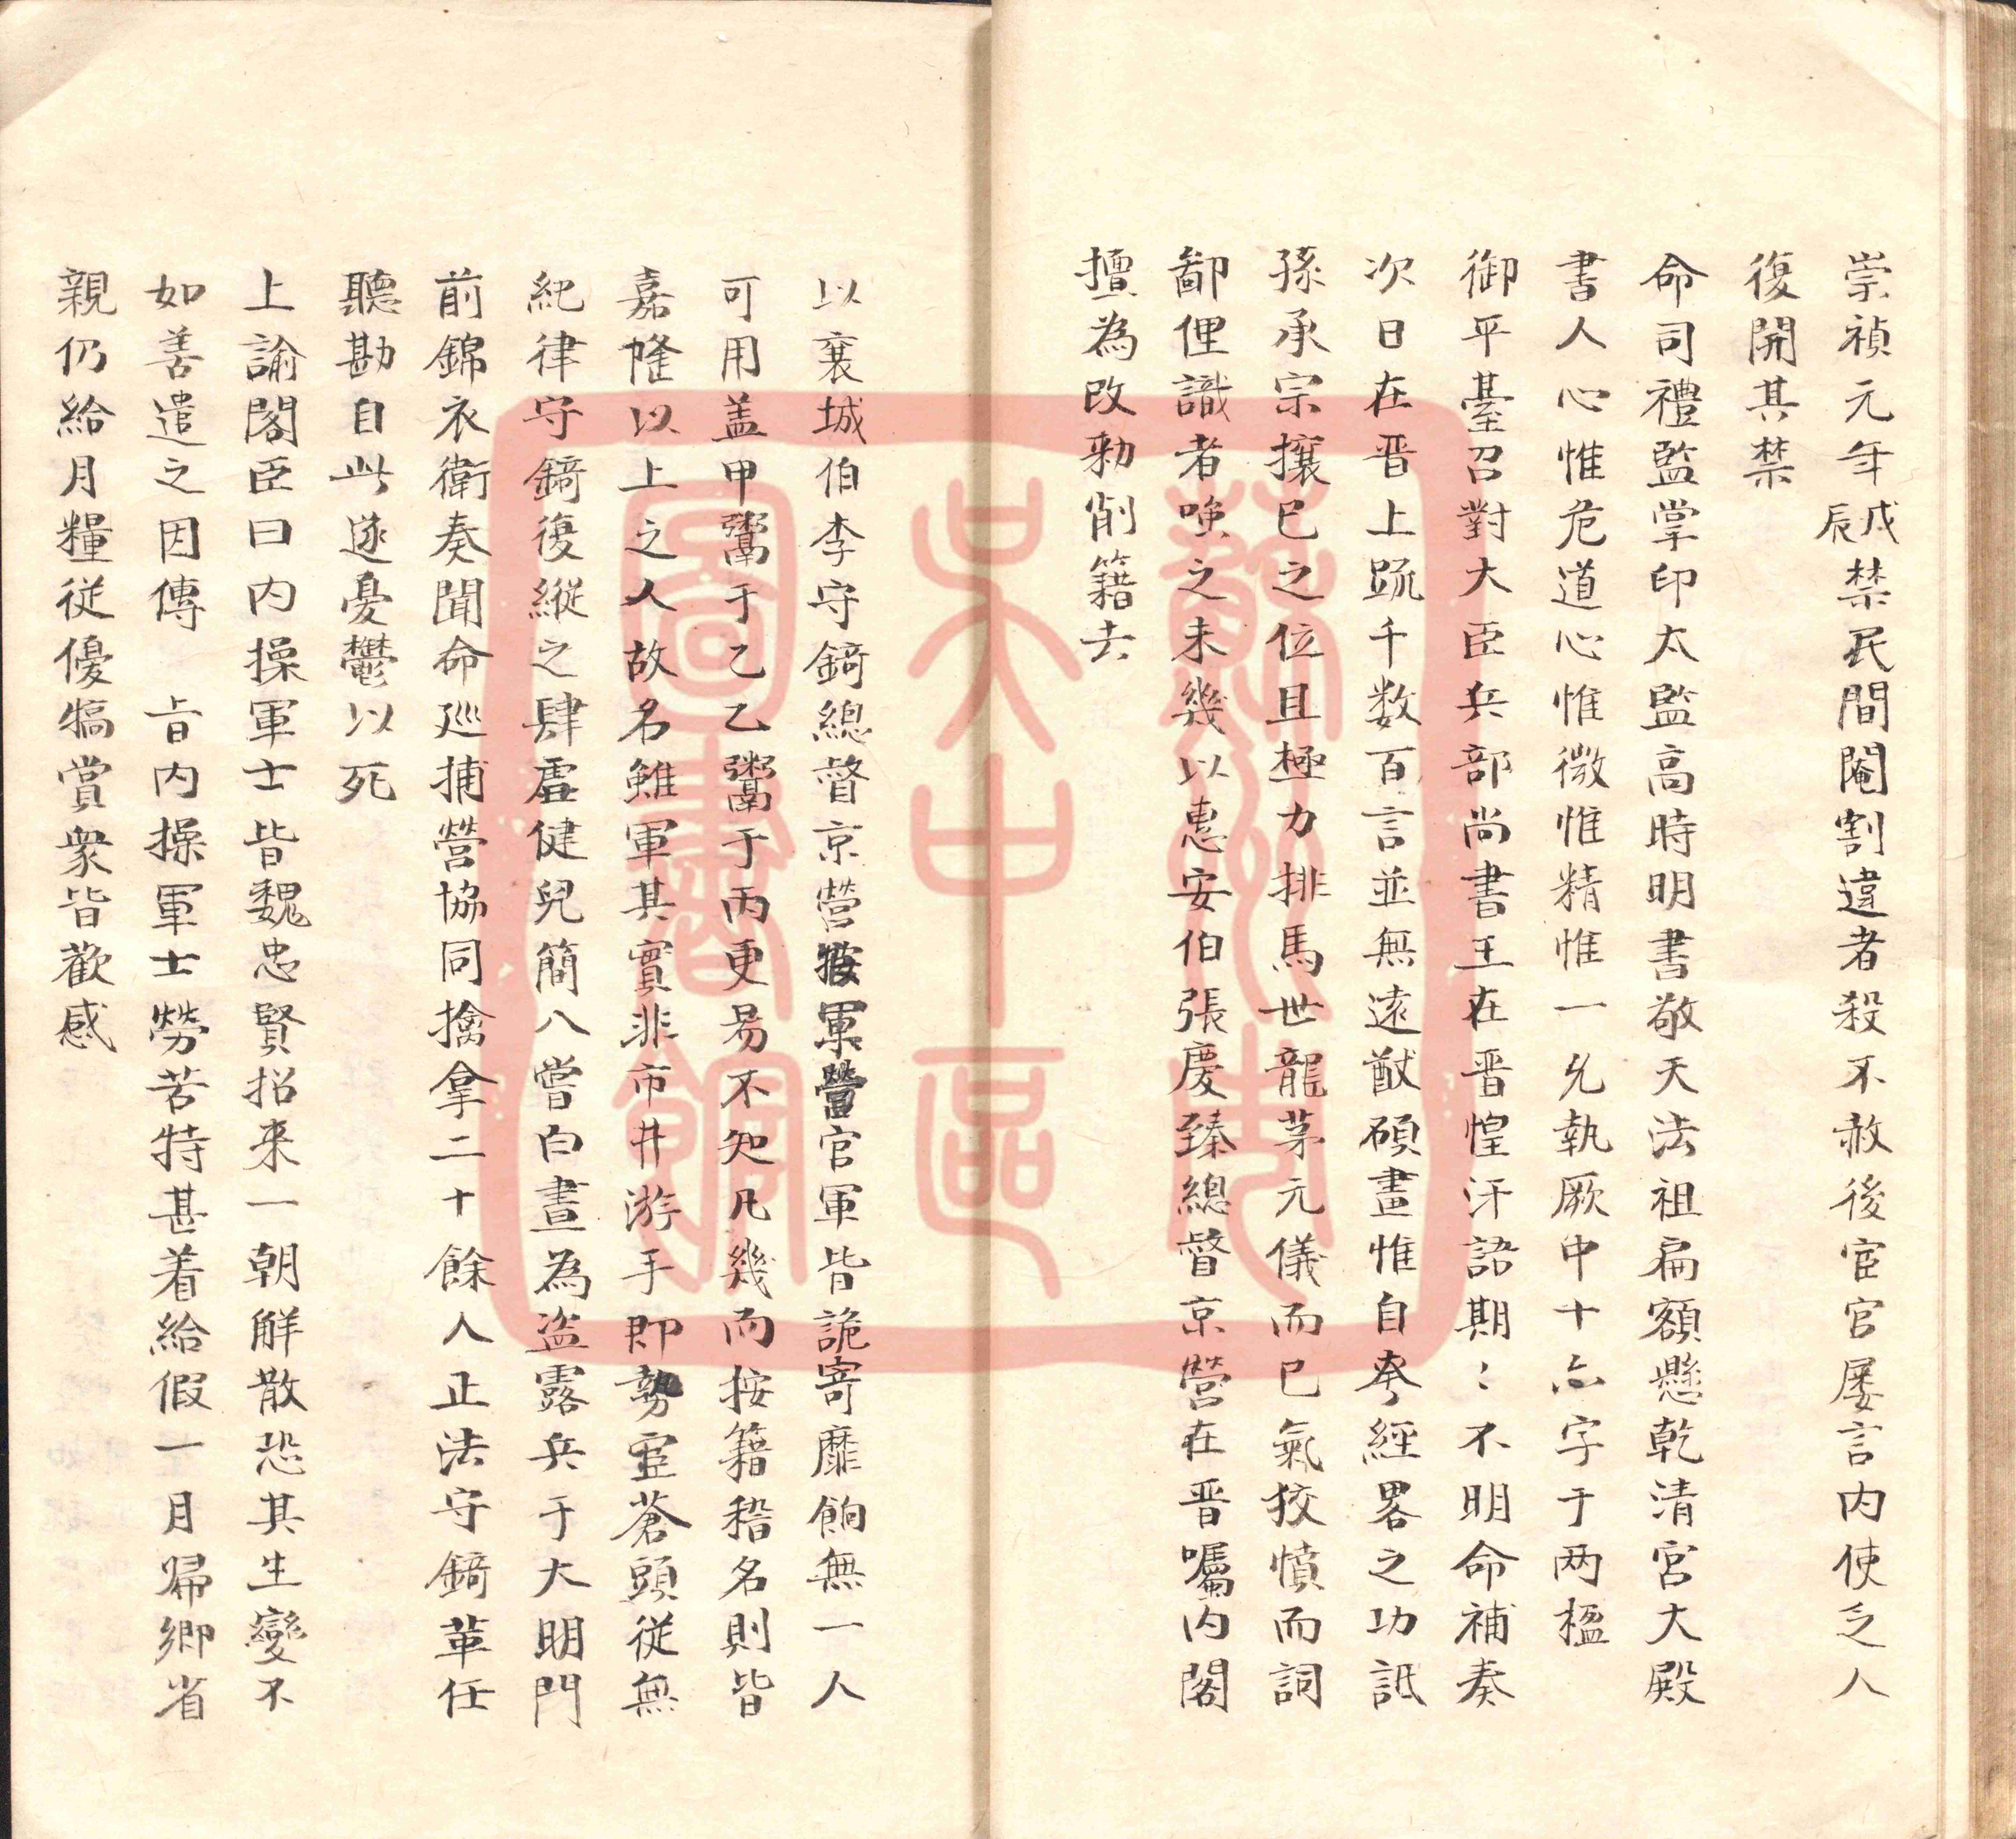 崇禎元年戊辰禁民間閹割違者殺不赦後宦官屡言内使乏人
復開其禁
命司禮監掌印太監高時明書敬天法祖扁額懸乾清宮大殿
書人心惟危道心惟微惟精惟一允執厥中十六字于两楹
御平臺召對大臣兵部尚書王在晋惶汗語期〻不明命補奏
次日在晋上疏千数百言並無遠猷碩畫惟自夸經畧之功詆
孫承宗攘已之位且極力排馬世龍茅元儀而已氣狡憤而詞
鄙俚識者唤之未幾以惠安伯張慶臻總督京營在晋囑内閣
擅為改勅削籍去
以襄城伯李守錡總督京營軍營官軍皆詭寄靡餉無一人
可用盖甲鬻于乙乙鬻于丙更易不知凡幾而按籍稽名則皆
嘉隆以上之人故名雖軍其實非市井游手即勢宦蒼頭従無
紀律守錡復縱之肆虐健兒簡八嘗白晝為盗露兵于大明門
前錦衣衛奏聞命廵捕營協同擒拿二十餘人正法守錡革任
聽勘自此遂憂鬱以死
上諭閣臣曰内操軍士皆魏忠賢招来一朝解散恐其生變不
如善遣之因傳 㫖内操軍士勞苦特甚着給假一月歸鄉省
親仍給月糧従優犒賞衆皆歡感
蘇州市
吴中區
圖書館